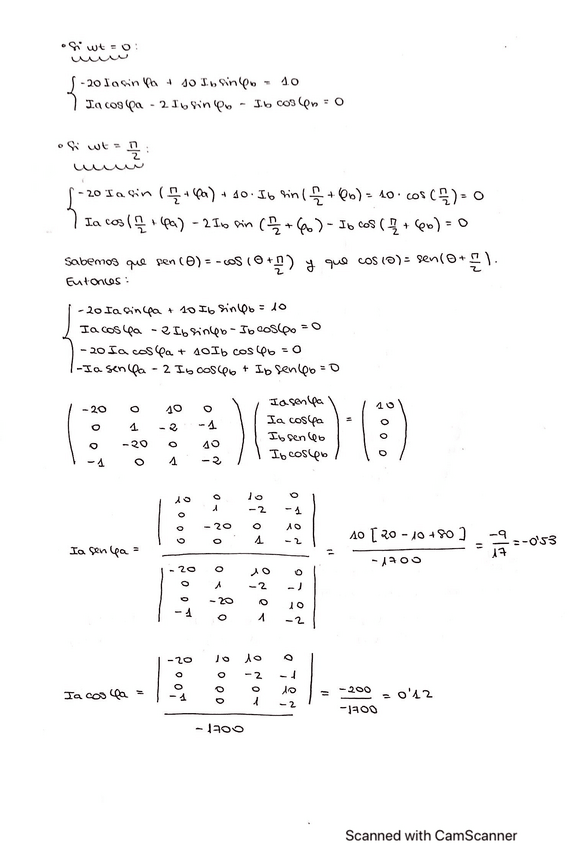 • Si wt = 0 :
{ -20 Ia sin φa + 10 Ib sin φb = 10
Ia cos φa - 2 Ib sin φb - Ib cos φb = 0
• Si wt = π/2 :
{ -20 Ia sin (π/2 + φa) + 10 · Ib sin (π/2 + φb) = 10 · cos (π/2) = 0
Ia cos (π/2 + φa) - 2Ib sin (π/2 + φb) - Ib cos (π/2 + φb) = 0
Sabemos que sen(θ) = -cos (θ + π/2) y que cos(θ) = sen(θ + π/2).
Entonces :
{ -20 Ia sin φa + 10 Ib sin φb = 10
Ia cos φa - 2 Ib sin φb - Ib cos φb = 0
-20 Ia cos φa + 10 Ib cos φb = 0
-Ia sen φa - 2 Ib cos φb + Ib sen φb = 0
( -20 0 10 0 ) ( Ia sen φa ) = ( 10 )
0 1 -2 -1 Ia cos φa 0
0 -20 0 10 Ib sen φb 0
-1 0 1 -2 Ib cos φb 0
10 0 10 0
0 1 -2 -1
0 -20 0 10
0 0 1 -2
Ia sen φa = = 10 [ 20 - 10 + 80 ] / -1700 = -9/17 = -0'53
-20 0 10 0
0 1 -2 -1
0 -20 0 10
-1 0 1 -2
-20 10 10 0
0 0 -2 -1
0 0 0 10
-1 0 1 -2
Ia cos φa = = -200 / -1700 = 0'12
-1700
Scanned with CamScanner